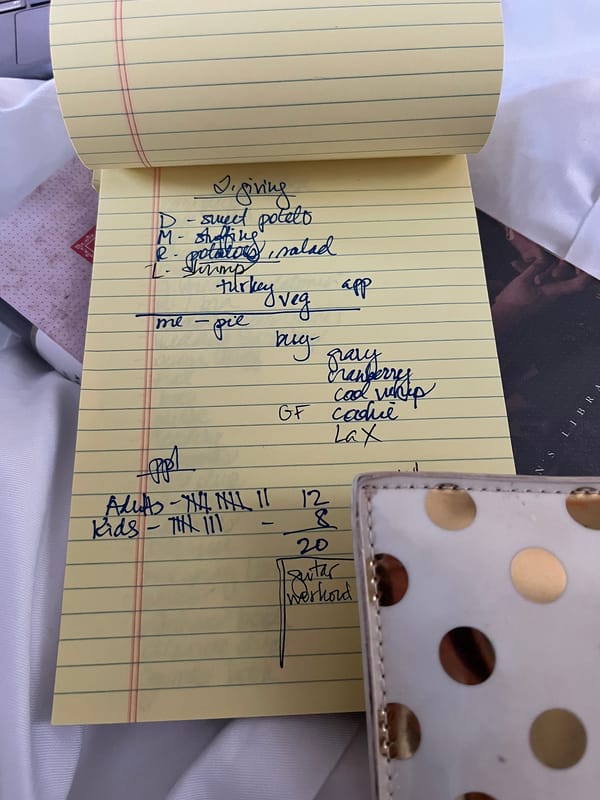 T.giving
D - sweet potato
M - stuffing
R. potatoes, salad
L - shrimp
turkey
veg app
me - pie
buy -
gravy
cranberry
cool whip
GF cookie
LaX
ppl
Adults - 𝍸 𝍸 II 12
Kids - 𝍸 III - 8
20
guitar
workout
S LIBRA